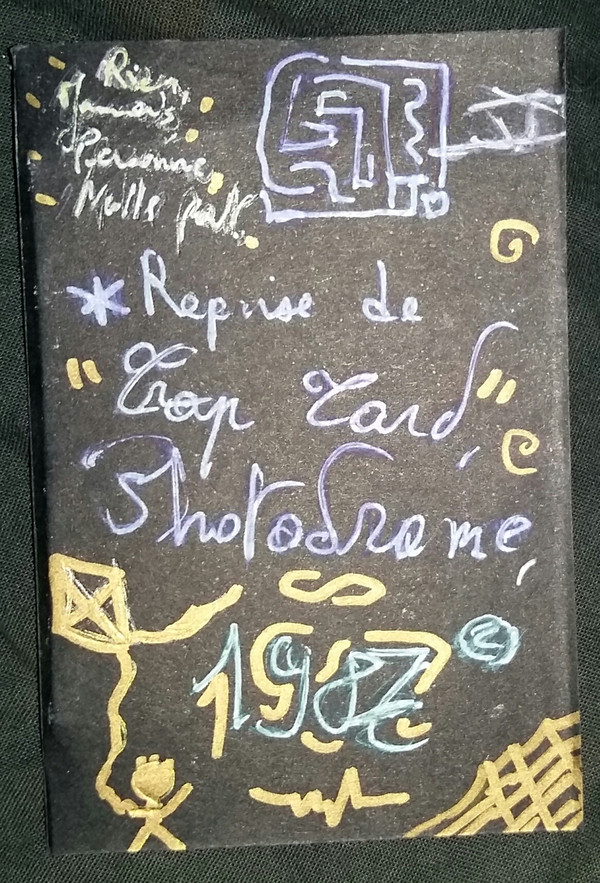 Rien,
Jamais
Personne,
Nulle part.
* Reprise de
"Trop Tard",
Photodrame,
1982 ②